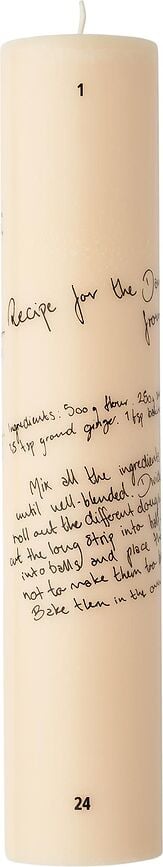 1
Recipe for the
from
Ingredients: 500g flour. 250g
1.5 tsp grand ginger. 1 tsp
Mix all the ingredients
until well-blended.
roll out the different
cut the long strip into
into balls and place
not to make them too
Bake them in the
24